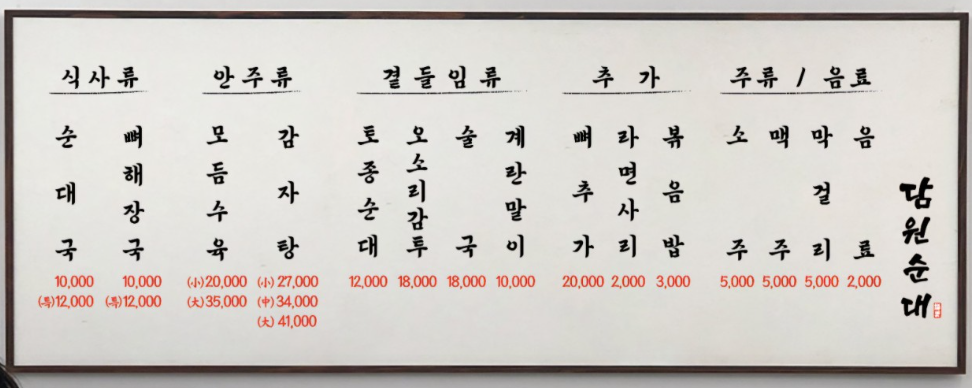 식사류
순대국
10,000
(특)12,000
뼈해장국
10,000
(특)12,000
안주류
모듬수육
(小)20,000
(大)35,000
감자탕
(小)27,000
(中)34,000
(大)41,000
곁들임류
토종순대
12,000
오소리감투
18,000
술국
18,000
계란말이
10,000
추가
뼈추가
20,000
라면사리
2,000
볶음밥
3,000
주류 / 음료
소주
5,000
맥주
5,000
막걸리
5,000
음료
2,000
담원순대